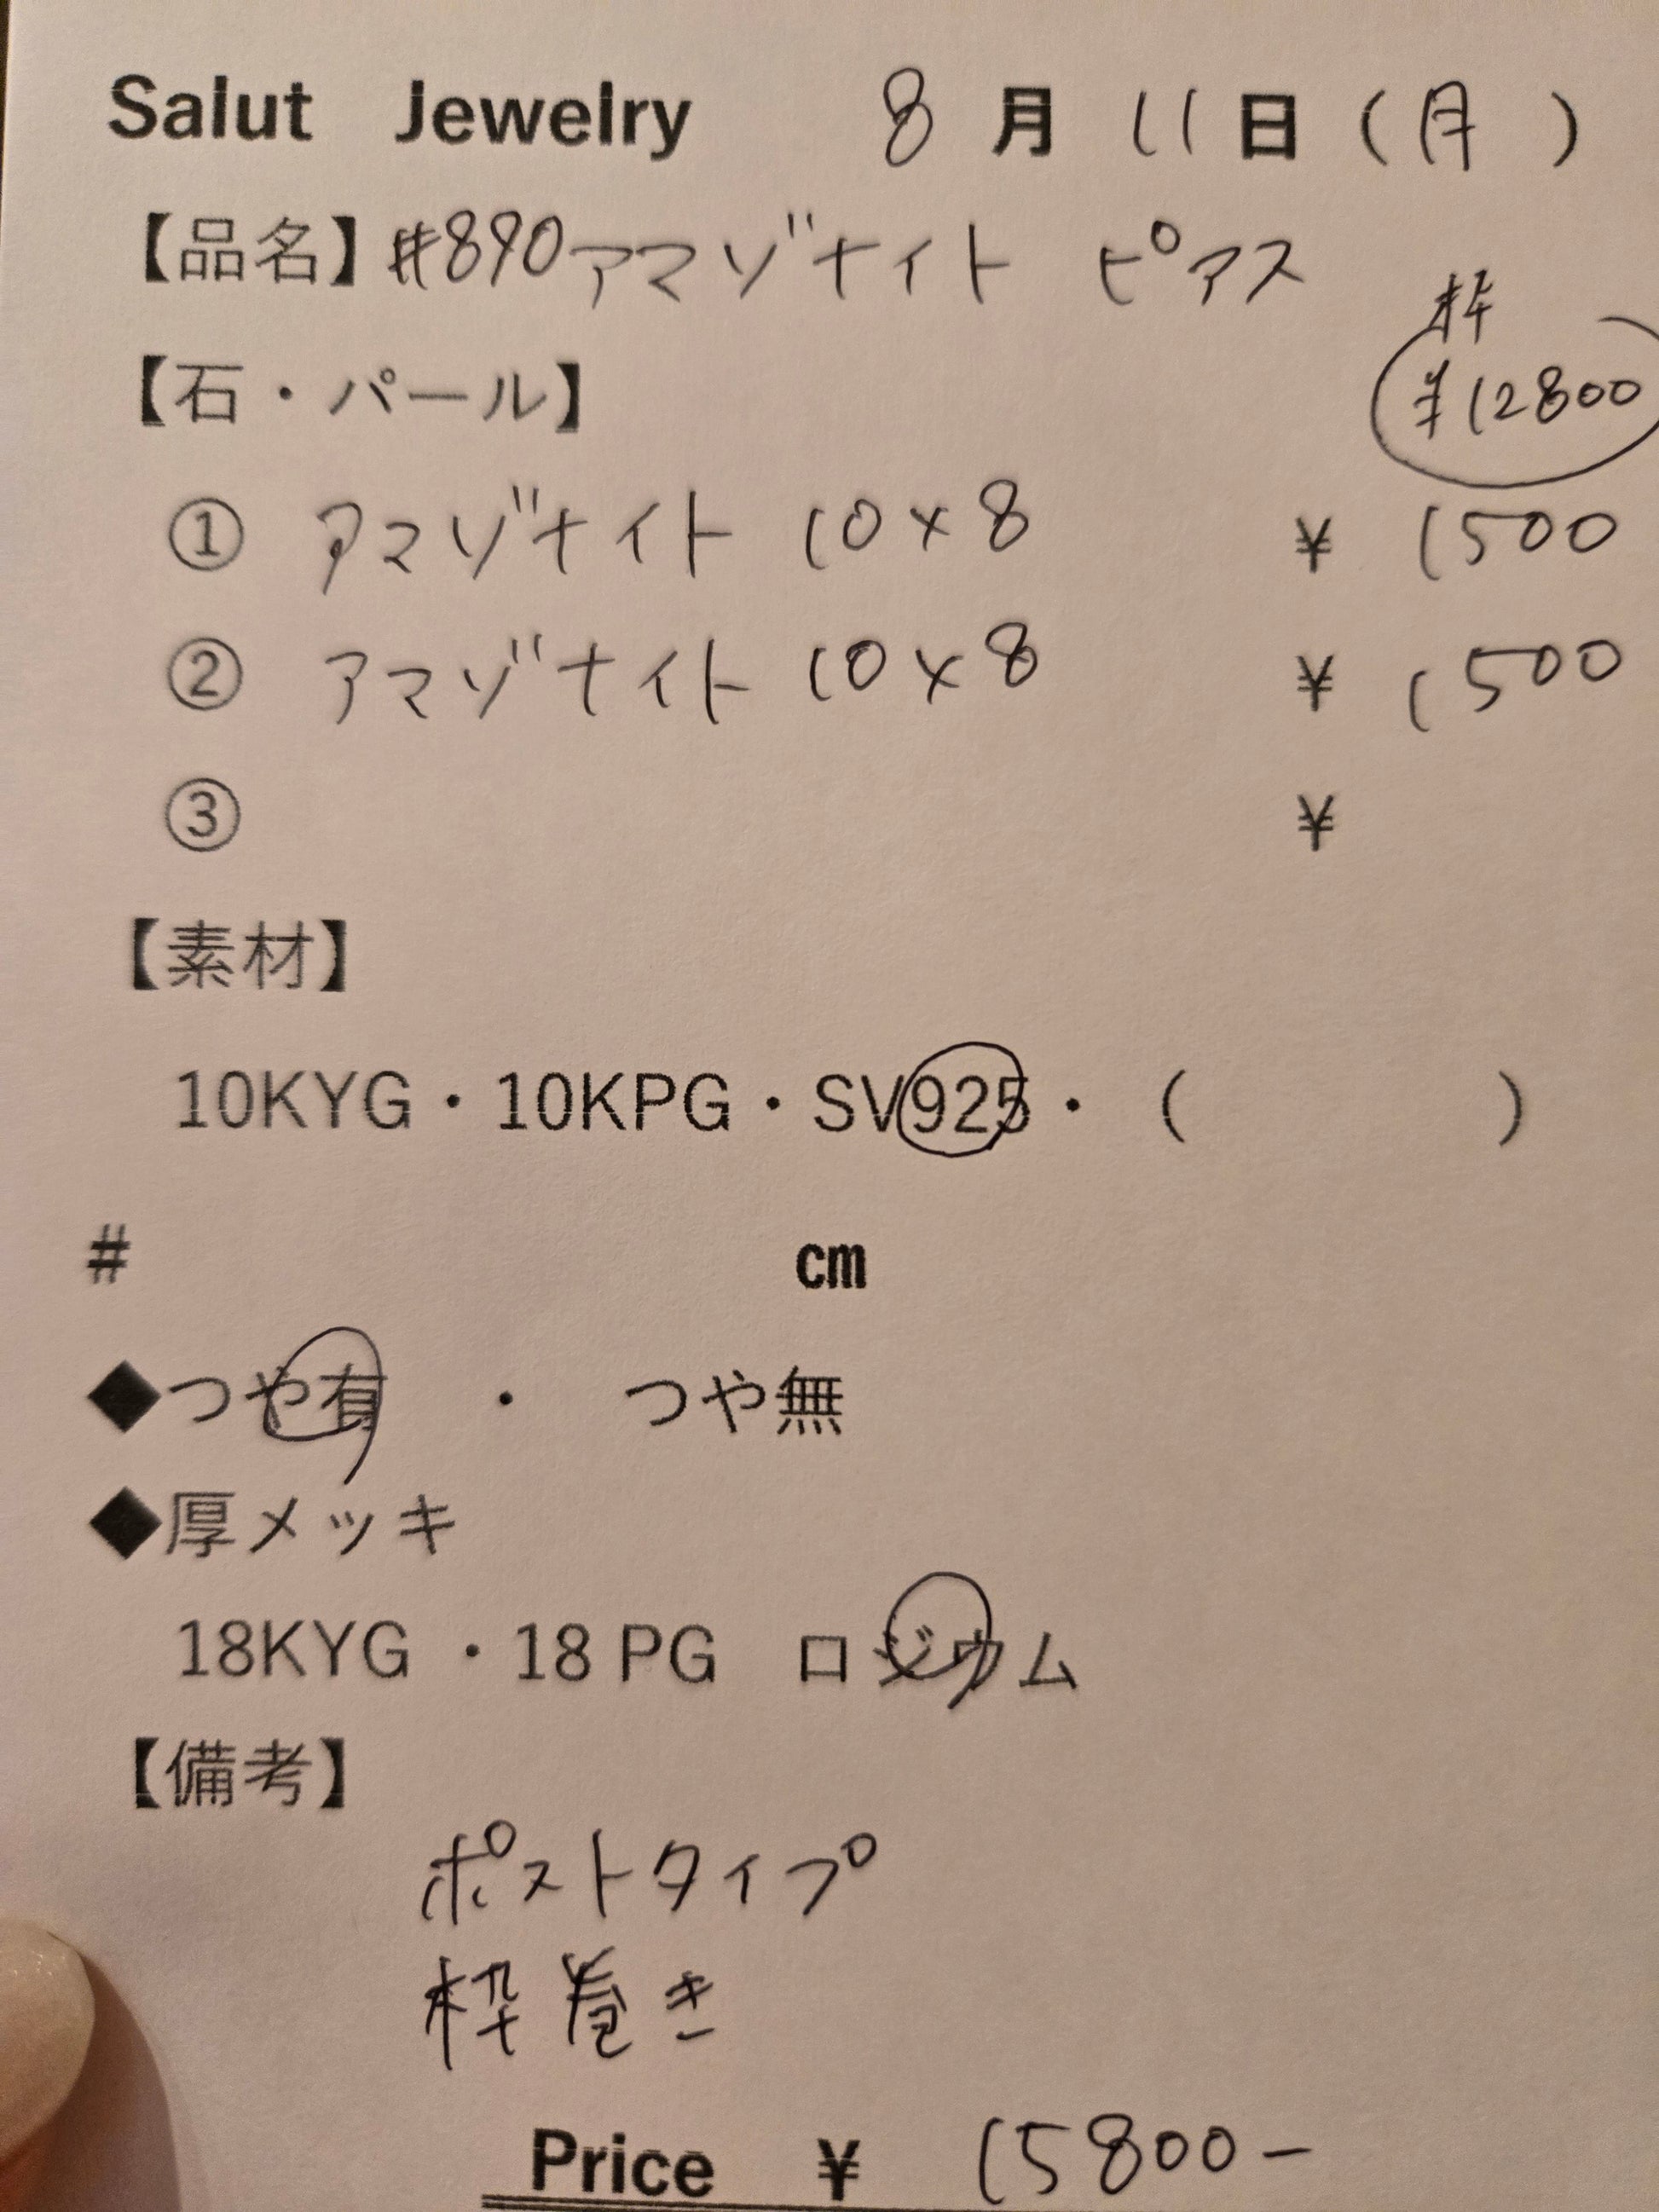 Salut Jewelry 8月11日(月)
【品名】#890アマゾナイト ピアス
枠
【石・パール】
¥12800
① アマゾナイト 10×8 ¥ 1500
② アマゾナイト 10×8 ¥ 1500
③ ¥
【素材】
10KYG・10KPG・SV925・( )
# cm
◆つや有 ・ つや無
◆厚メッキ
18KYG ・18 PG ロジウム
【備考】
ポストタイプ
枠巻き
Price ¥ 15800-